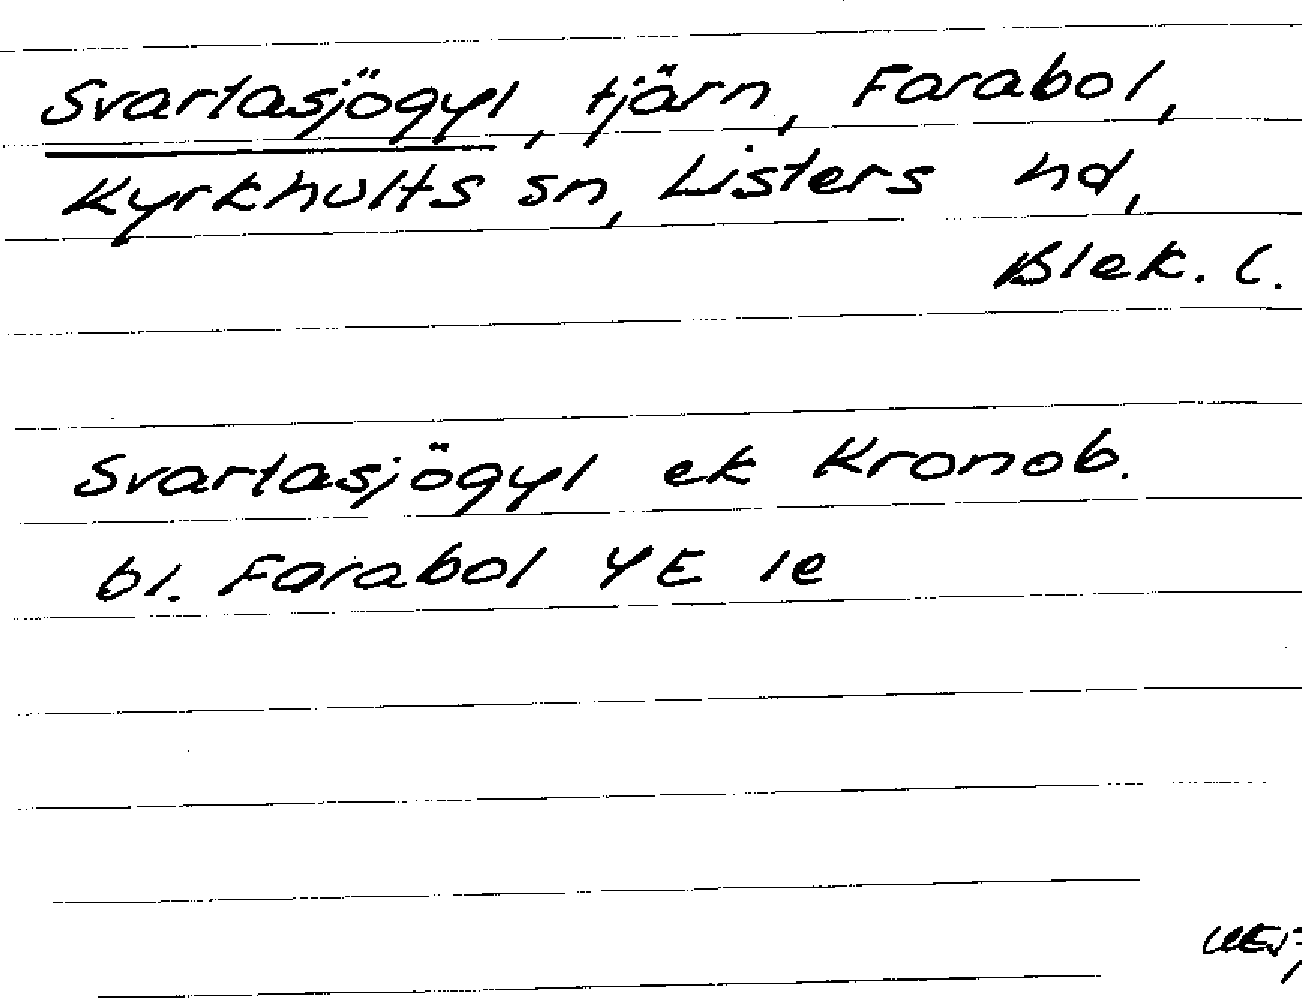 Svartasjögyl, tjärn, Farabol,
Kyrkhults sn, Listers hd,
Blek. l.
Svartasjögyl ek Kronob.
bl. Farabol 4E 1e